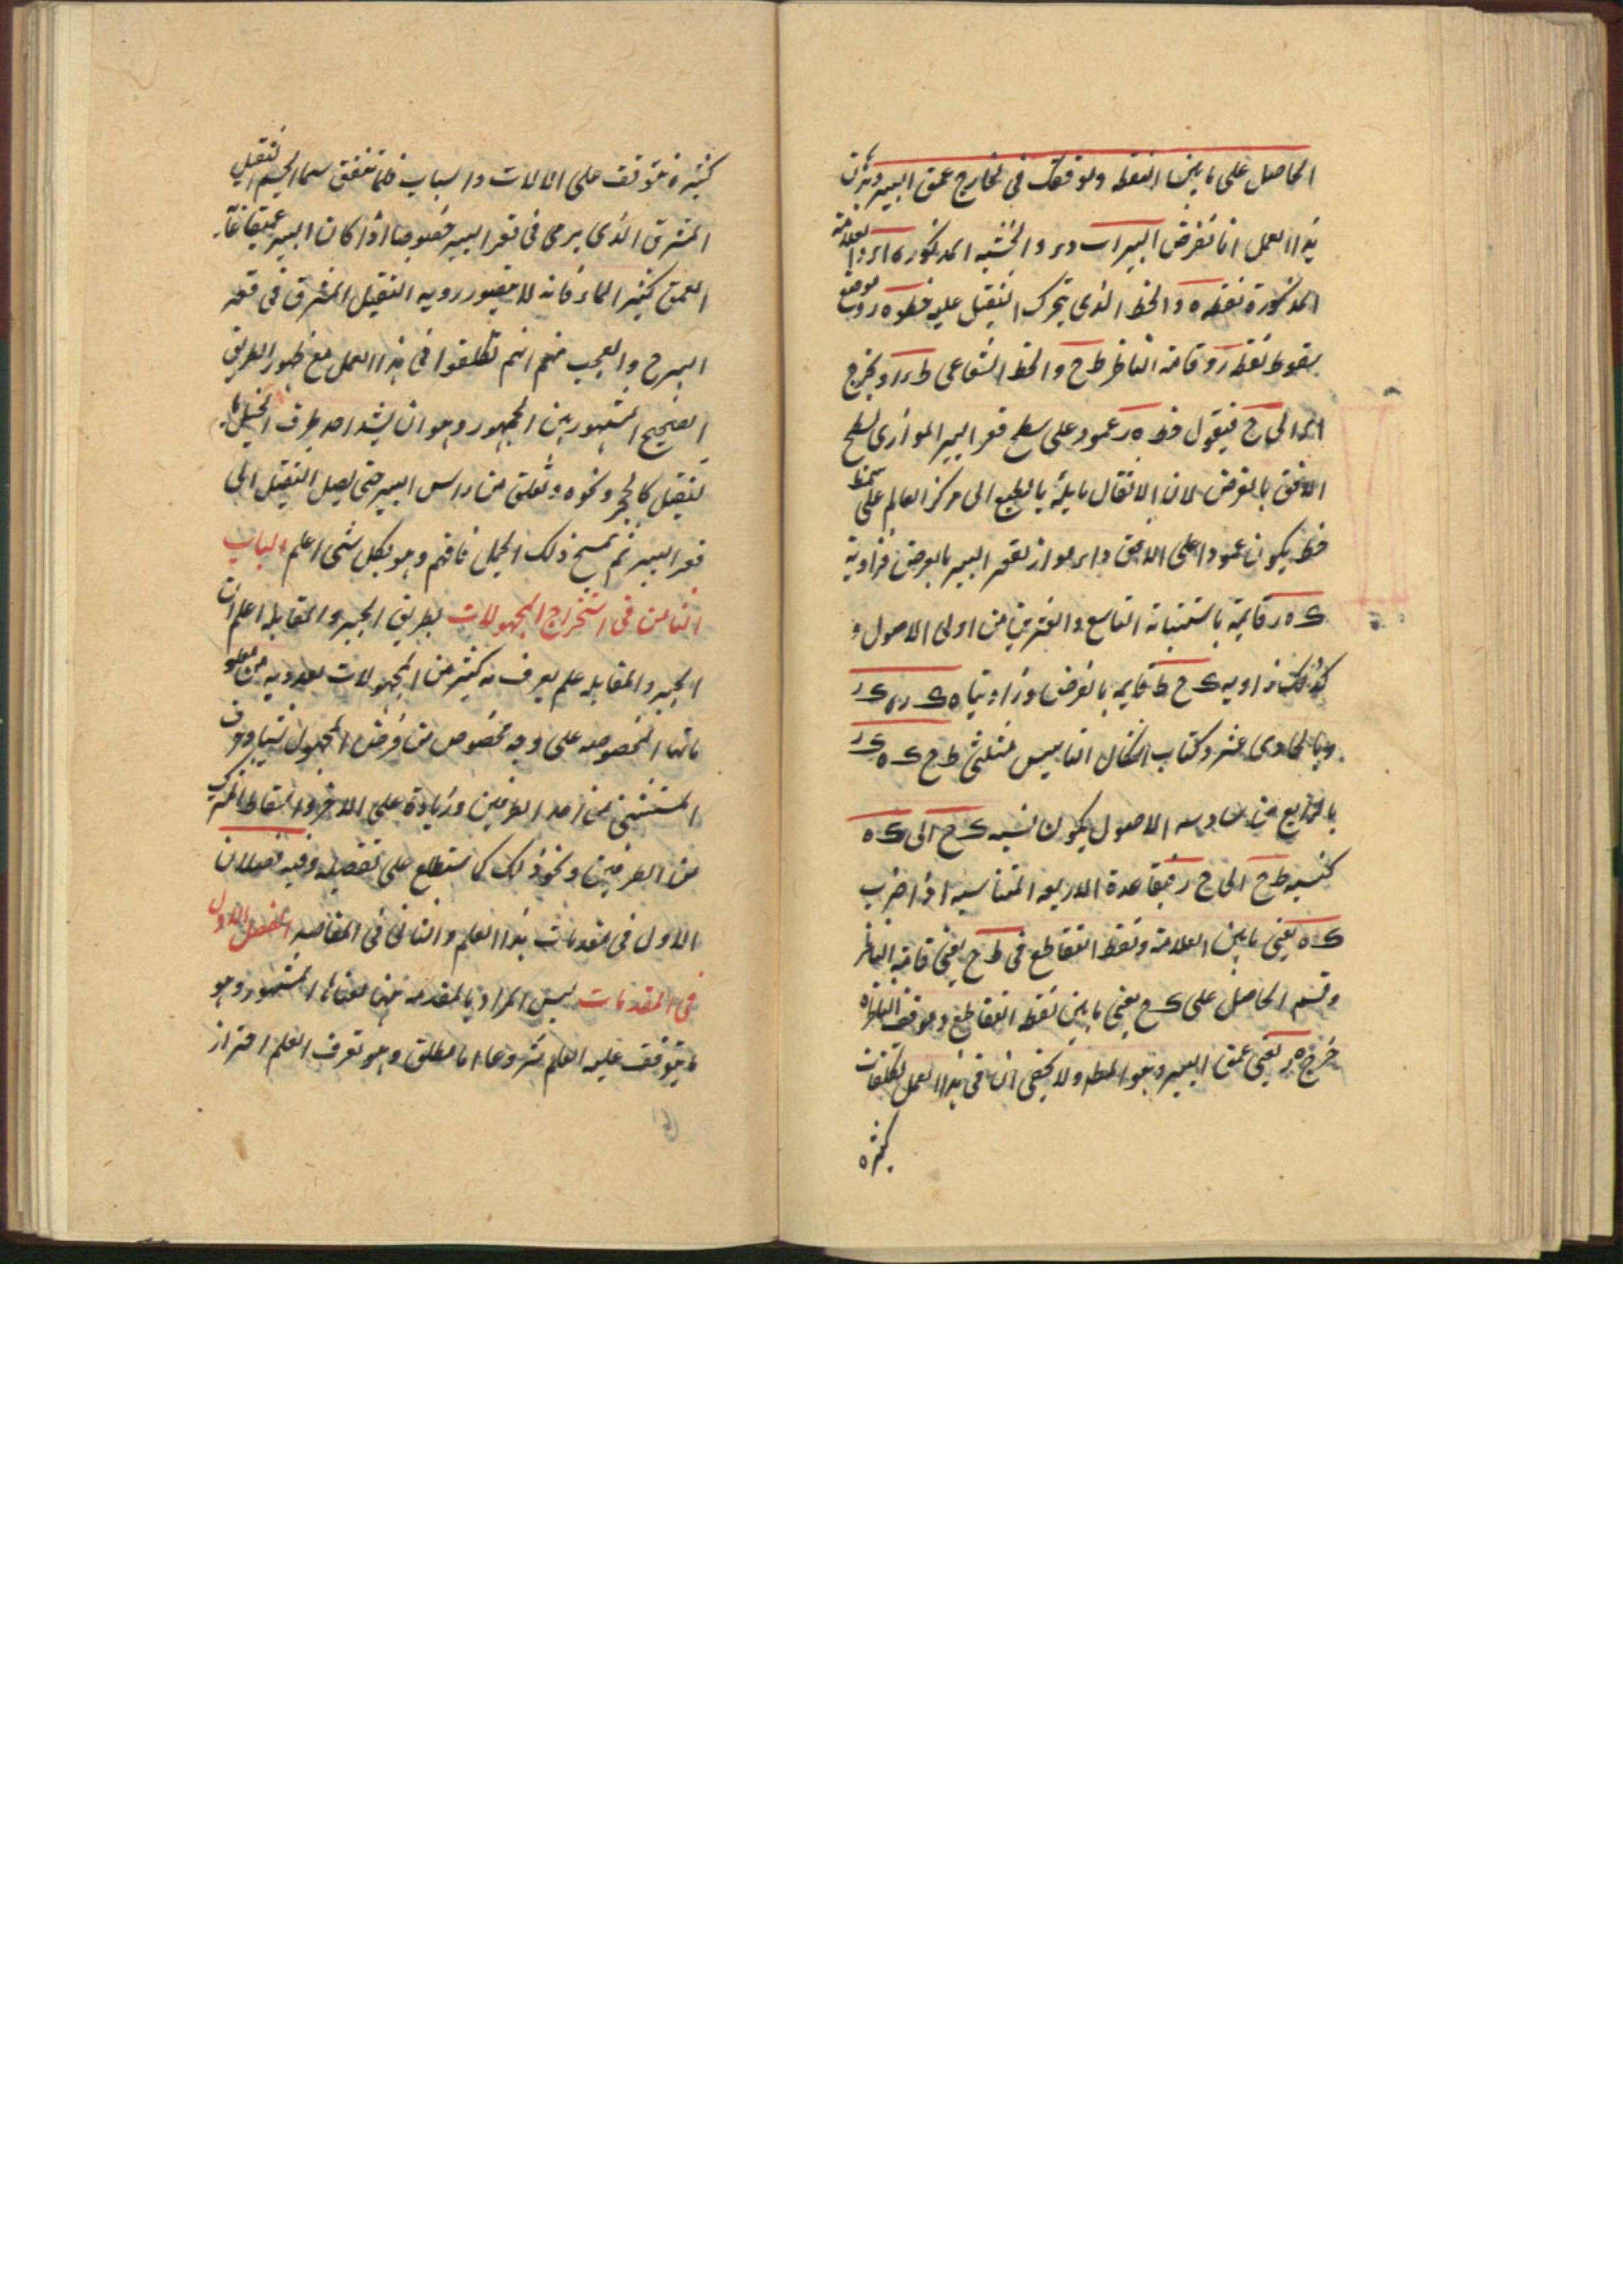 الحاصل على ما بين النقطه وموقفك فى الخارج عمق البير وبرهان
هذا العمل انا نفرض البير اب د ر والخشبه المذكوره ا ر والعلامة
المذكورة نقطه ه والخط الذى يتحرك الثقيل عليه خط ه ر وموضع
سقوط نقطه ر وقامة الناظر ط ح والخط الشعاعى ط ر ويخرج
الى ح فيقول خط ه ر عمود على سطح قعر البير الموازى لسطح
الافق بالفرض لان الاثقال مايلة بالطبع الى مركز العالم على سمت
خط يكون عمودا على الافق و ا ر مواز لقعر البير بالفرض فزاوية
ك ه ر قايمة باستبانة التاسع والعشرين من اولى الاصول و
كذلك زاويه ك ح ط قايمه بالفرض وزاويتا ه ك ر
وبالحادى عشر وكتاب اشكال التاسيس مثلثى ط ح ك ه ك ر
بالرابع من سادسه الاصول يكون نسبه ك ح الى ك ه
كنسبه ط ح الى ه ر فبقاعدة الاربعه المتناسبه اذا ضرب
ك ه يعنى ما بين العلامة ونقطه التقاطع فى ط ح يعنى قامة الناظر
وقسم الحاصل على ك ح يعنى ما بين نقطه التقاطع وموقف الناظر
خرج ه ر يعنى عمق البير وهو المط ولا يخفى ان فى هذا العمل تكلفات
كثيره
كثيرة يتوقف على الالات واسباب قلما تتفق سيما الجسم الثقيل
المشرق الذى يرمى فى قعر البير خصوصا اذا كان البير عميقا غاية
العمق كثير الماء فانه لا يتصور رويه الثقيل المشرق فى قعره
البير ح والعجب منهم انهم تكلفوا فى هذا العمل مع ظهور الطريق
الصحيح المشهور بين الجمهور وهو ان يشد احد طرف الحبل بـ
ثقيل كالحجر ونحوه وتعلق من راس البير حتى يصل الثقيل الى
قعر البير ثم يمسح ذلك الحبل فافهم وهو بكل شى اعلم الباب
الثامن فى استخراج المجهولات بطريق الجبر والمقابله اعلم ان
الجبر والمقابله علم يعرف به كثير من المجهولات العدديه من معلو
ماتها المخصوصه على وجه مخصوص من فرض المجهول شيا وحذف
المستثنى من احد الطرفين وزيادة على الاخر واسقاط المشترك
من الطرفين ونحو ذلك كما ستطلع على تفصيله وفيه فصلان
الاول فى مقدمات هذا العلم والثانى فى المقاصد الفصل الاول
فى المقدمات ليس المراد بالمقدمه ههنا معناها المشهور وهو
ما يتوقف عليه العلم شروعا اما مطلق وهو تعرف العلم احتراز